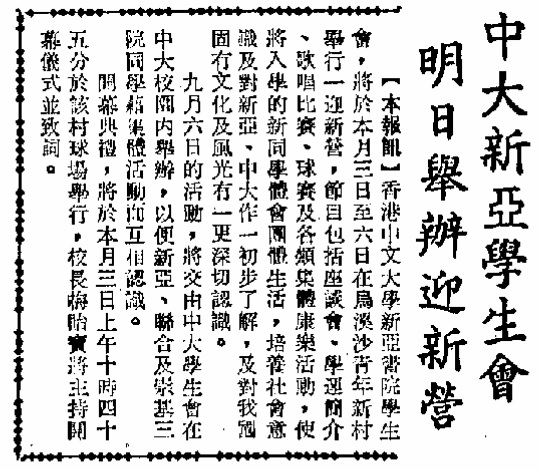 中大新亞學生會
明日舉辦迎新營
【本報訊】香港中文大學新亞書院學生
會,將於本月三日至六日在烏溪沙青年新村
舉行一迎新營,節目包括座談會、學運簡介
、歌唱比賽、球賽及各類集體康樂活動,使
將入學的新同學體會團體生活,培養社會意
識及對新亞、中大作一初步了解,及對我國
固有文化及風光有一更深切認識。
九月六日的活動,將交由中大學生會在
中大校園內舉辦,以便新亞、聯合及崇基三
院同學藉集體活動而互相認識。
開幕典禮,將於本月三日上午十時四十
五分於該村球場舉行,校長梅貽寶將主持開
幕儀式並致詞。